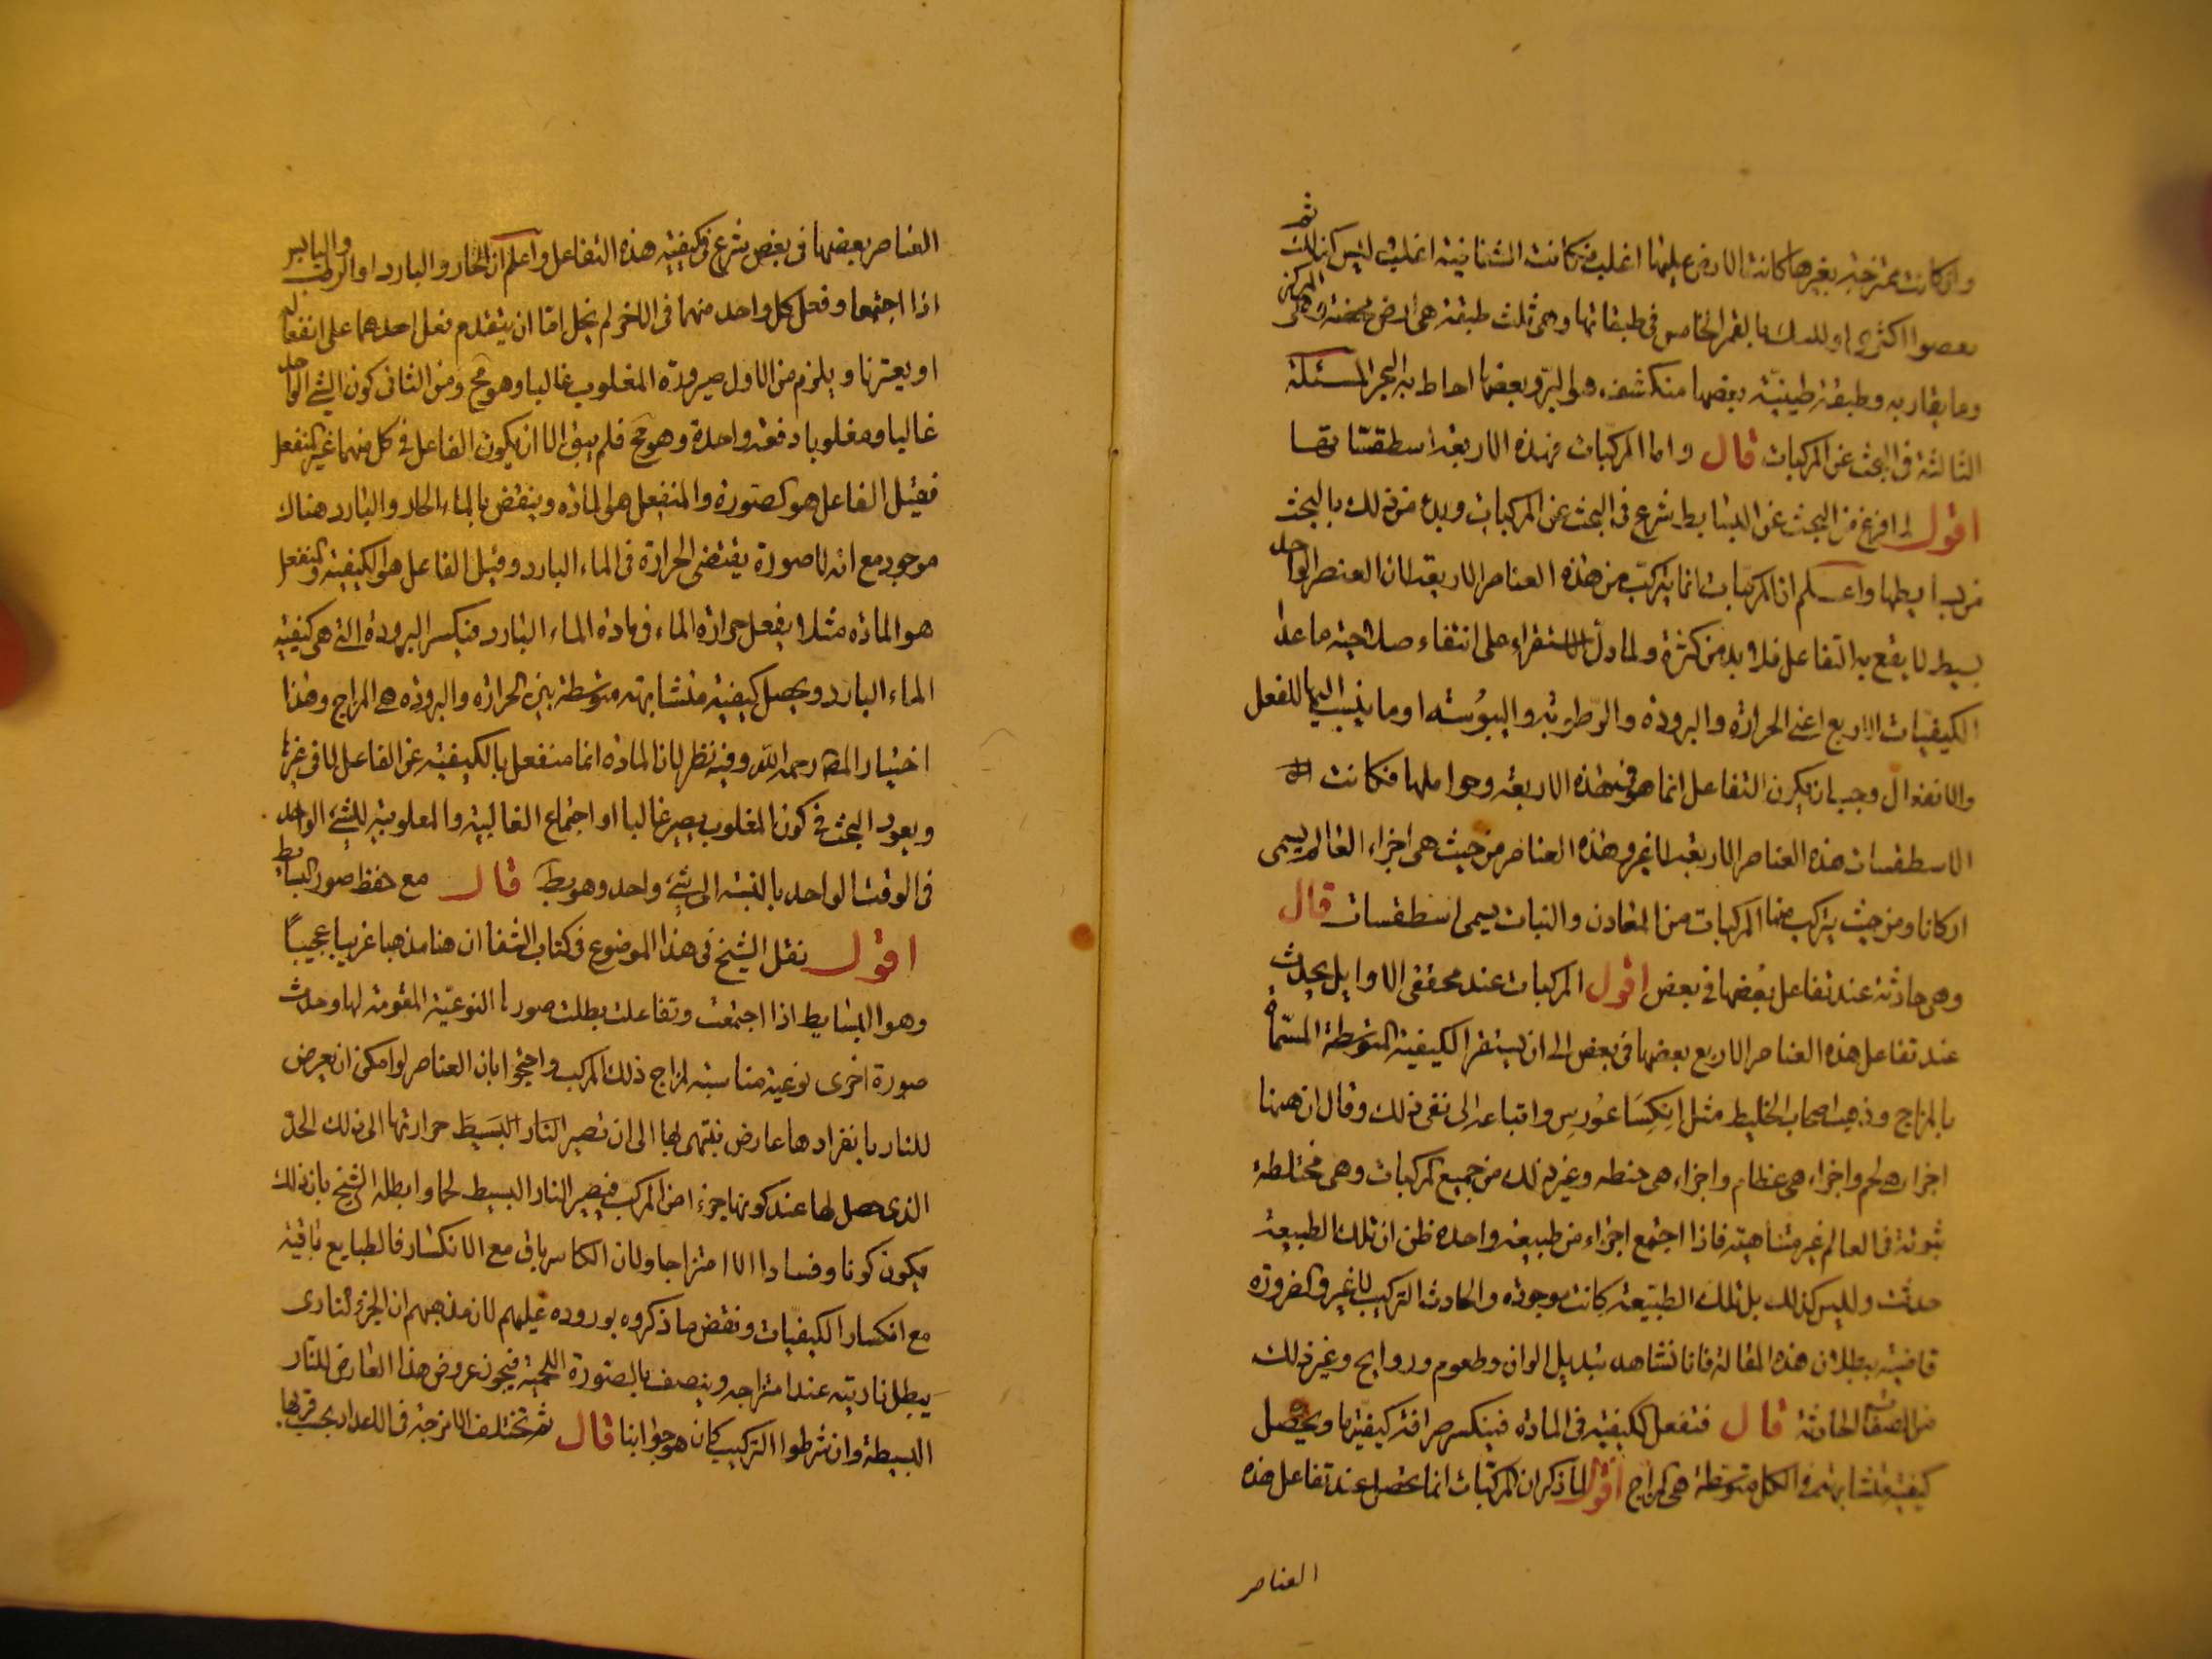 وان كانت ممتزجة بغيرها كانت الارض عليها اغلب فكانت الشفافية اغلب وليس كذلك ثم
اكثر في طبقاتها وهي ثلث طبقة هي ارض محضة وهي المركز
وما يقاربه وطبقة طينية بعضها منكشف هو البر وبعضها احاط به البحر المسئلة
الثالثة في البحث عن المركبات قال واما المركبات فهذه الاربعة اسطقساتها
اقول لما فرغ من البحث عن البسايط شرع في البحث عن المركبات وبدء من ذلك بالبحث
من بسايطها واعلم ان المركبات انما يتركب من هذه العناصر الاربعة لان العنصر الواحد
بسيط لا يقع به التفاعل فلا بد من كثرة ولما دل الاستقراء على انتفاء صلاحية ما عدا
الكيفيات الاربع اعني الحرارة والبرودة والرطوبة واليبوسة او ما ينسب اليها للفعل
والانفعال وجب ان يكون التفاعل انما هو في هذه الاربعة وحواملها فكانت
الاسطقسات هذه العناصر الاربعة لا غير وهذه العناصر من حيث هي اجزاء العالم يسمى
اركانا ومن حيث يتركب منها المركبات من المعادن والنبات يسمى اسطقسات قال
وهي حادثة عند تفاعل بعضها في بعض اقول المركبات عند محققي الاوايل يحدث
عند تفاعل هذه العناصر الاربع بعضها في بعض الى ان يستقر الكيفية المتوسطة المسماة
بالمزاج وذهب اصحاب الخليط مثل انكساغورس واتباعه الى نفي ذلك وقال ان ههنا
اجزاء هي لحم واجزاء هي عظام واجزاء هي حنطه وغير ذلك من جميع المركبات وهي مختلطة
مبثوثة في العالم غير متناهية فاذا اجتمع اجزاء من طبيعة واحدة ظن ان تلك الطبيعة
حدثت وليس كذلك بل تلك الطبيعة كانت موجودة والحادث التركيب لا غير والضرورة
قاضية ببطلان هذه المقالة فانا نشاهد تبديل الوان وطعوم وروايح وغير ذلك
من الصفات الحادثة قال فتفعل الكيفية في المادة فينكسر صرافة كيفيتها ويحصل
كيفية متشابهة في الكل متوسطة هي المزاج اقول لما ذكر ان المركبات انما يحصل عند تفاعل هذه
العناصر
العناصر بعضها في بعض شرع في كيفية هذه التفاعل واعلم ان الحار والبارد او الرطب واليابس
اذا اجتمعا وفعل كل واحد منهما في الاخر لم يخل اما ان يتقدم فعل احدهما على انفعاله
او يقترنا ويلزم من الاول صيرورة المغلوب غالبا وهو مح ومن الثاني كون الشئ الواحد
غالبا ومغلوبا دفعة واحدة وهو مح فلم يبق الا ان يكون الفاعل في كل منهما غير المنفعل
فقيل الفاعل هو الصورة والمنفعل هو المادة وينقض بالماء الحار والبارد هناك
موجود مع انه لا صورة يقتضي الحرارة في الماء البارد وقيل الفاعل هو الكيفية والمنفعل
هو المادة مثلا يفعل حرارة الماء في مادة الماء البارد فيكسر البرودة التي هي كيفية
الماء البارد ويحصل كيفية متشابهة متوسطة بين الحرارة والبرودة هي المزاج وهذا
اختيار المص رحمه الله وفيه نظر لان المادة انما منفعل بالكيفية عن الفاعل لا في غيرها
ويعود البحث في كون المغلوب يصير غالبا او اجتماع الغالبية والمغلوبية للشئ الواحد
في الوقت الواحد بالنسبة الى شئ واحد وهو بط قال مع حفظ صور البسايط
اقول نقل الشيخ في هذا الموضوع في كتاب الشفا ان هنا مذهبا غريبا عجيبا
وهو البسايط اذا اجتمعت وتفاعلت بطلت صورها النوعية المقومة لها وحدث
صورة اخرى نوعية مناسبة لمزاج ذلك المركب واحتجوا بان العناصر لو امكن ان يعرض
للنار بانفرادها عارض ينتهي بها الى ان تصير النار البسيط حرارتها الى ذلك الحد
الذي حصل لها عند كونها جزءا من المركب فيصير النار البسيط لحما وابطله الشيخ بان ذلك
يكون كونا وفسادا الا امتزاجا ولان الكاسر باق مع الانكسار فالطبايع باقية
مع انكسار الكيفيات ونقض ما ذكروه بوروده عليهم لان مذهبهم ان الجزء الناري
يبطل ناريته عند امتزاجه ويتصف بالصورة اللحمية فيجوز عروض هذا العارض للنار
البسيطة وان شرطوا التركيب كان هو جوابنا قال ثم تختلف الامزجة في الاعداد بحسب قربها